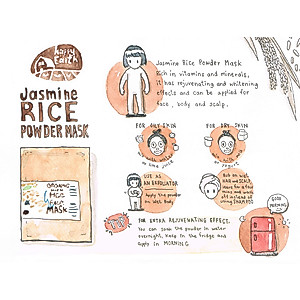 Happy
Earth
Jasmine
RICE
POWDER MASK
Jasmine Rice Powder Mask
Rich in vitamins and minerals,
it has rejuvenating and whitening
effects and can be applied for
face, body and scalp.
FOR OILY SKIN
FOR DRY SKIN
USE AS
AN EXFOLIATOR
Apply the powder
on Wet Body.
Rub on wet
instead of
using SHAMPOO
ORGANIC
RICE
FACE
MASK
TIP
FOR EXTRA REJUVENATING EFFECT.
You can soak the powder in water
overnight, keep in the fridge and
apply in MORNING.
GOOD
MORNING